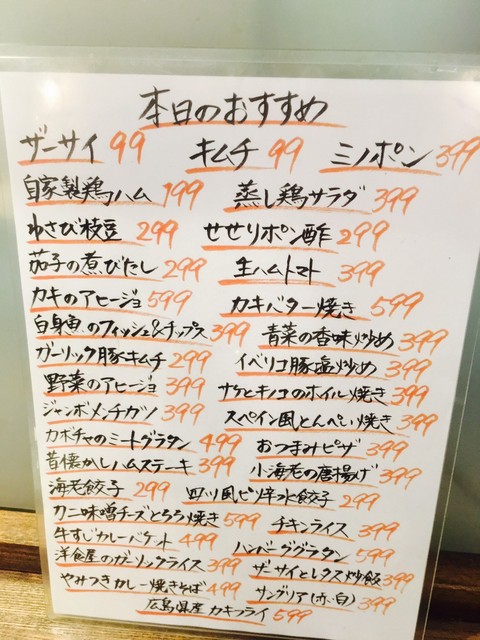 本日のおすすめ
ザーサイ 99 キムチ 99 ミノポン 399
自家製鶏ハム 199 蒸し鶏サラダ 399
わさび枝豆 299 せせりポン酢 299
茄子の煮びたし 299 生ハムトマト 399
カキのアヒージョ 599 カキバター焼き 599
白身魚のフィッシュ&チップス 399 青菜の香味炒め 399
ガーリック豚キムチ 299 イベリコ豚塩炒め 399
野菜のアヒージョ 399 サケとキノコのホイル焼き 399
ジャンボメンチカツ 399 スペイン風とんぺい焼き 399
カボチャのミートグラタン 499 おつまみピザ 399
昔懐かしハムステーキ 399 小海老の唐揚げ 399
海老餃子 299 四川風ピリ辛水餃子 299
カニ味噌チーズとろろ焼き 599 チキンライス 399
牛すじカレーバケット 499 ハンバーググラタン 599
洋食屋のガーリックライス 399 ザーサイとレタス炒飯 399
やみつきカレー焼きそば 499 サングリア(赤・白) 399
広島県産 カキフライ 599